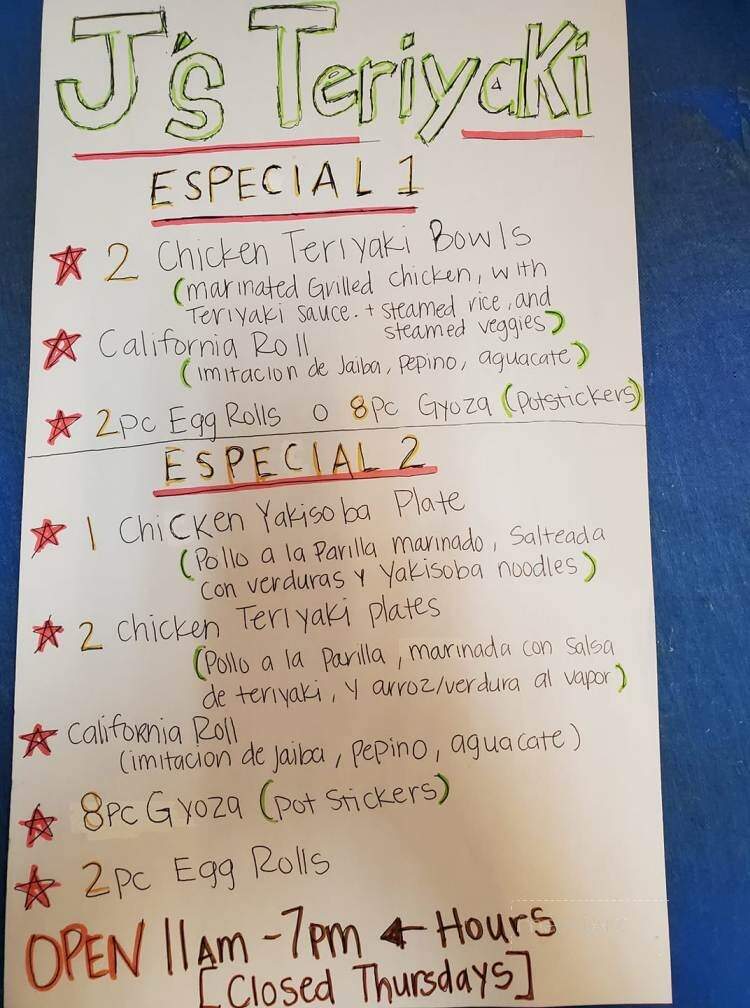 J's Teriyaki
ESPECIAL 1
2 Chicken Teriyaki Bowls
(marinated Grilled chicken, with
Teriyaki sauce. + steamed rice, and
steamed veggies)
California Roll
(imitacion de Jaiba, Pepino, aguacate)
2pc Egg Rolls o 8pc Gyoza (Potstickers)
ESPECIAL 2
1 Chicken Yakisoba Plate
(Pollo a la Parilla marinado, Salteada
con verduras y Yakisoba noodles)
2 Chicken Teriyaki plates
(Pollo a la Parilla, marinada con Salsa
de teriyaki, y arroz/verdura al vapor)
California Roll
(imitacion de Jaiba, Pepino, aguacate)
8pc Gyoza (Pot Stickers)
2pc Egg Rolls
OPEN 11am - 7pm ← Hours
[Closed Thursdays]